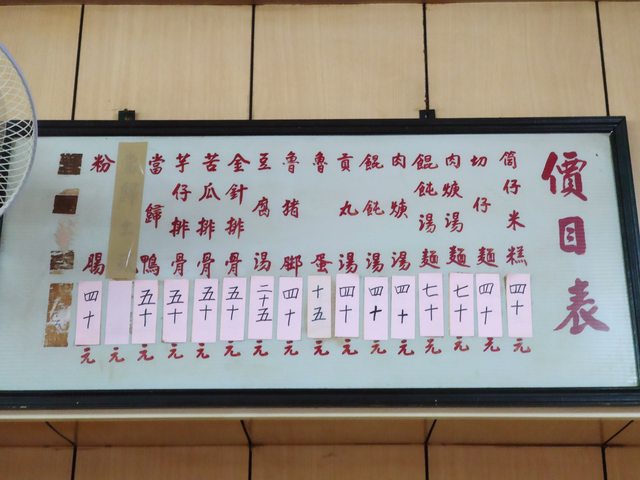 價目表
筒仔米糕四十元
切仔麵四十元
肉焿湯麵七十元
餛飩湯麵七十元
肉焿湯四十元
餛飩湯四十元
貢丸湯四十元
魯蛋十五元
魯豬腳四十元
豆腐湯二十五元
金針排骨五十元
苦瓜排骨五十元
芋仔排骨五十元
當歸鴨五十元
元
粉腸四十元